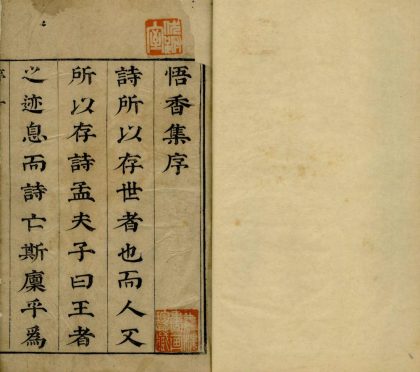 悟香集序
詩所以存世者也而人又
所以存詩孟夫子曰王者
之迹息而詩亡斯廩乎爲